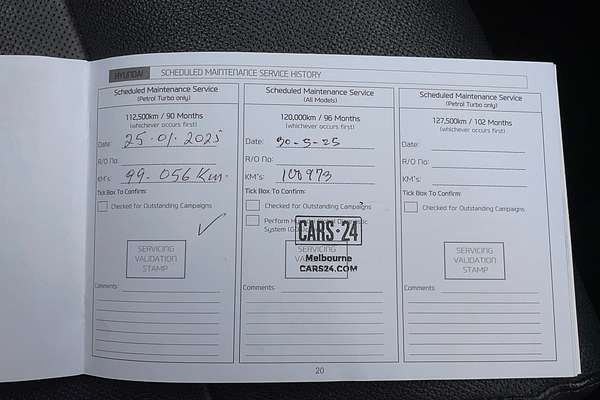 HYUNDAI SCHEDULED MAINTENANCE SERVICE HISTORY
Scheduled Maintenance Service
(Petrol Turbo only)
112,500km / 90 Months
(whichever occurs first)
Date: 25.01.2025
R/O No:
KM's: 99.056 Km.
Tick Box To Confirm:
Checked for Outstanding Campaigns
SERVICING
VALIDATION
STAMP
Comments:
Scheduled Maintenance Service
(All Models)
120,000km / 96 Months
(whichever occurs first)
Date: 30-5-25
R/O No:
KM's: 100973
Tick Box To Confirm:
Checked for Outstanding Campaigns
Perform
System
CARS·24
SERVICING
VALIDATION
Melbourne
CARS24.COM
Comments:
Scheduled Maintenance Service
(Petrol Turbo only)
127,500km / 102 Months
(whichever occurs first)
Date:
R/O No:
KM's:
Tick Box To Confirm:
Checked for Outstanding Campaigns
SERVICING
VALIDATION
STAMP
Comments:
20